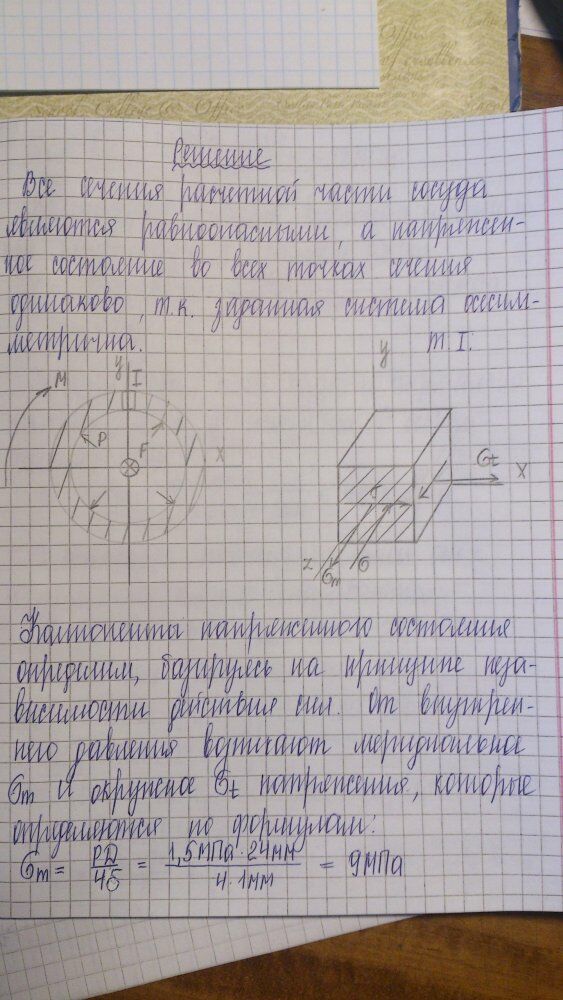 Решение
Все сечения расчетной части сосуда
являются равноопасными, а напряжен-
ное состояние во всех точках сечения
одинаково, т.к. заданная система осесим-
метрична.
т. I:
M
y
I
P
F
x
y
σt
x
τ
z
σm
σ
Компоненты напряженного состояния
определим, базируясь на принципе неза-
висимости действия сил. От внутрен-
него давления возникают меридиональное
σm и окружное σt напряжения, которые
определяются по формулам:
σm = PD/4δ = 1,5МПа·24мм/4·1мм = 9МПа